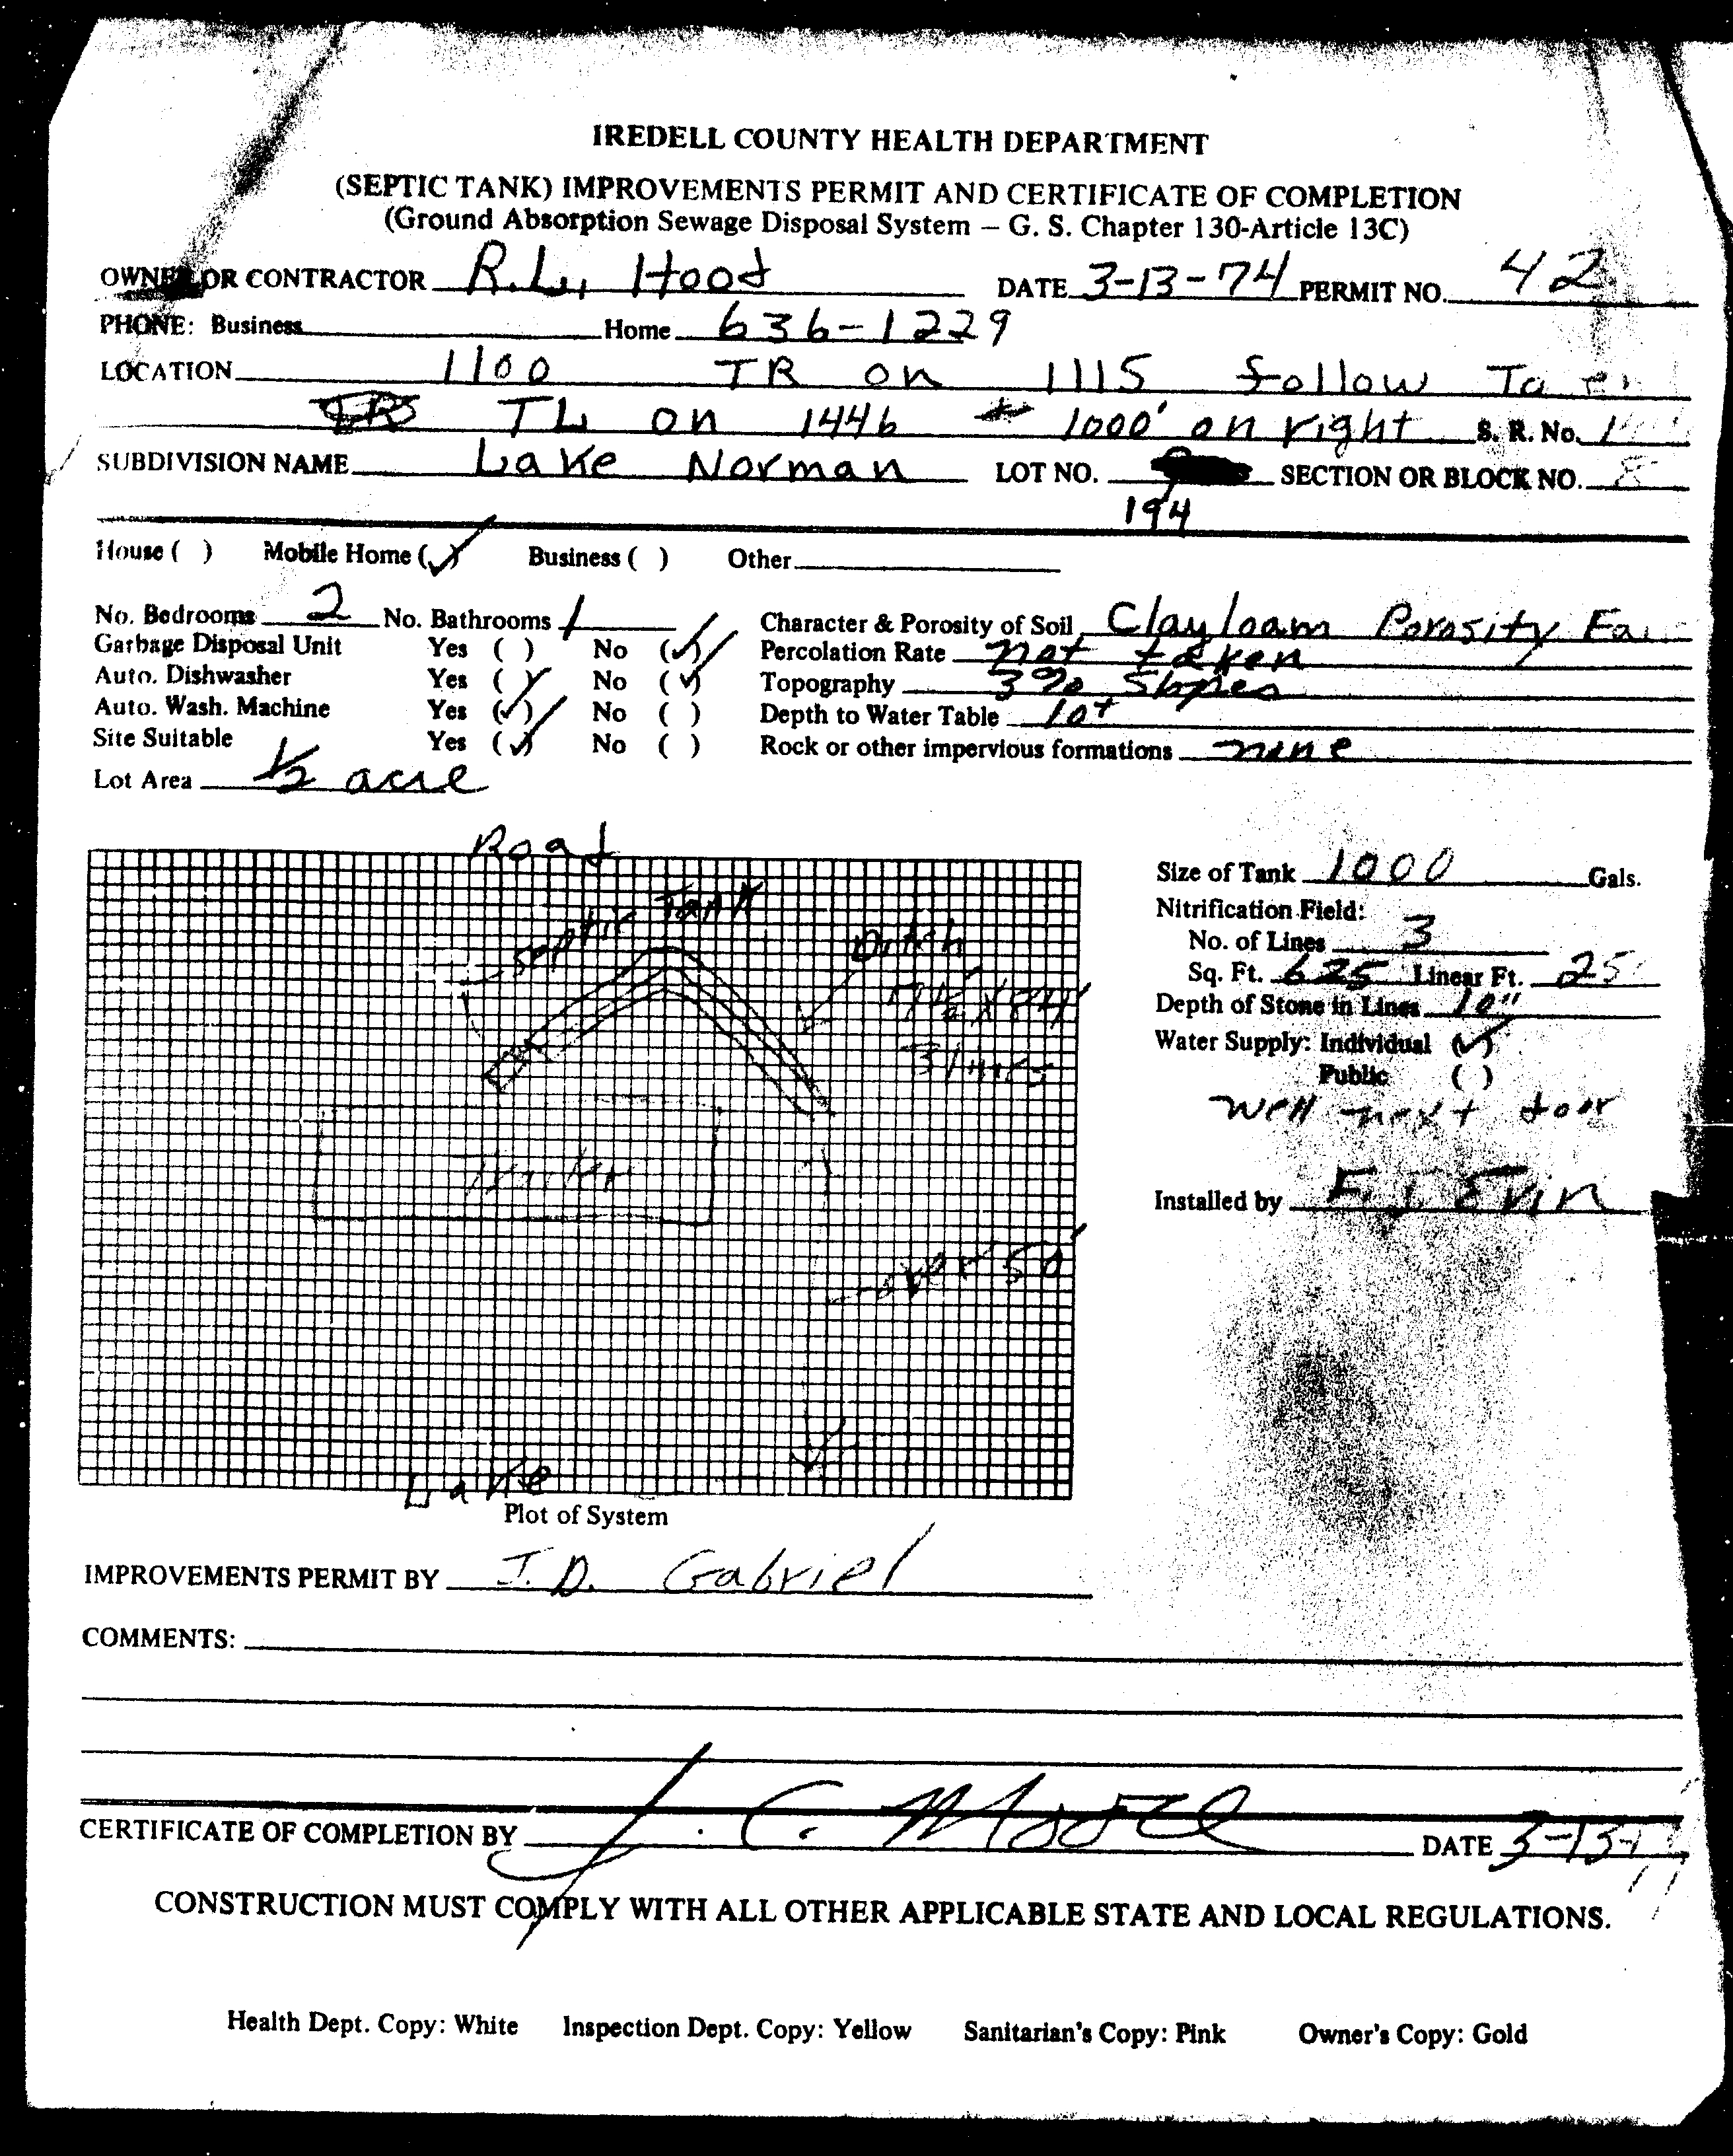 IREDELL COUNTY HEALTH DEPARTMENT
(SEPTIC TANK) IMPROVEMENTS PERMIT AND CERTIFICATE OF COMPLETION
(Ground Absorption Sewage Disposal System – G. S. Chapter 130-Article 13C)
OWNER OR CONTRACTOR R.L. Hood DATE 3-13-74 PERMIT NO. 42
PHONE: Business Home 636-1229
LOCATION 1100 TR on 1115 follow To
TL on 1446 1000' on right S. R. No.
SUBDIVISION NAME Lake Norman LOT NO. SECTION OR BLOCK NO.
194
House ( ) Mobile Home (✓) Business ( ) Other
No. Bedrooms 2 No. Bathrooms 1 Character & Porosity of Soil Clayloam Porosity
Garbage Disposal Unit Yes ( ) No (✓) Percolation Rate not taken
Auto. Dishwasher Yes ( ) No (✓) Topography 3% Slopes
Auto. Wash. Machine Yes (✓) No ( ) Depth to Water Table 10+
Site Suitable Yes (✓) No ( ) Rock or other impervious formations none
Lot Area 1/2 acre
Road
Size of Tank 1000 Gals.
Septic Tank
Nitrification Field:
Ditch
No. of Lines 3
Sq. Ft. 625 Linear Ft.
Depth of Stone in Lines 10"
3 lines
Water Supply: Individual (✓)
Public ( )
well next door
Installed by Ervin
over 50'
Lake
Plot of System
IMPROVEMENTS PERMIT BY J.D. Gabriel
COMMENTS:
CERTIFICATE OF COMPLETION BY J. C. Moore DATE 3-13-
CONSTRUCTION MUST COMPLY WITH ALL OTHER APPLICABLE STATE AND LOCAL REGULATIONS.
Health Dept. Copy: White Inspection Dept. Copy: Yellow Sanitarian's Copy: Pink Owner's Copy: Gold